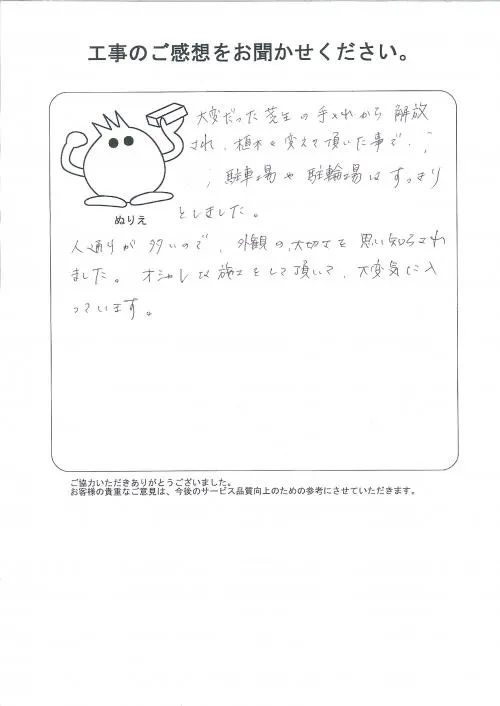 工事のご感想をお聞かせください。
大変だった芝生の手入れから 解放
され、植木も変えて頂いた事で、
駐車場や 駐輪場は すっきり
としました。
ぬりえ
人通りが 多いので、外観の大切さを 思い知らされ
ました。オシャレな施工をして頂いて、大変気に入
っています。
ご協力いただきありがとうございました。
お客様の貴重なご意見は、今後のサービス品質向上のための参考にさせていただきます。